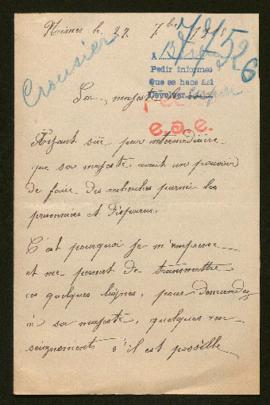 le 27 7bre
Crousier
526
A
Pedir informes
Que se hace
Devolver
Sa majesté
Ayant sût par intermédiaire
que sa majesté avait un pouvoir
de faire des recherches parmi les
prisonniers et disparus.
C'est pourquoi je m'empresse
et me permet de transmettre
ces quelques lignes, pour demander
à sa majesté, quelques ren-
seignements s'il est possible